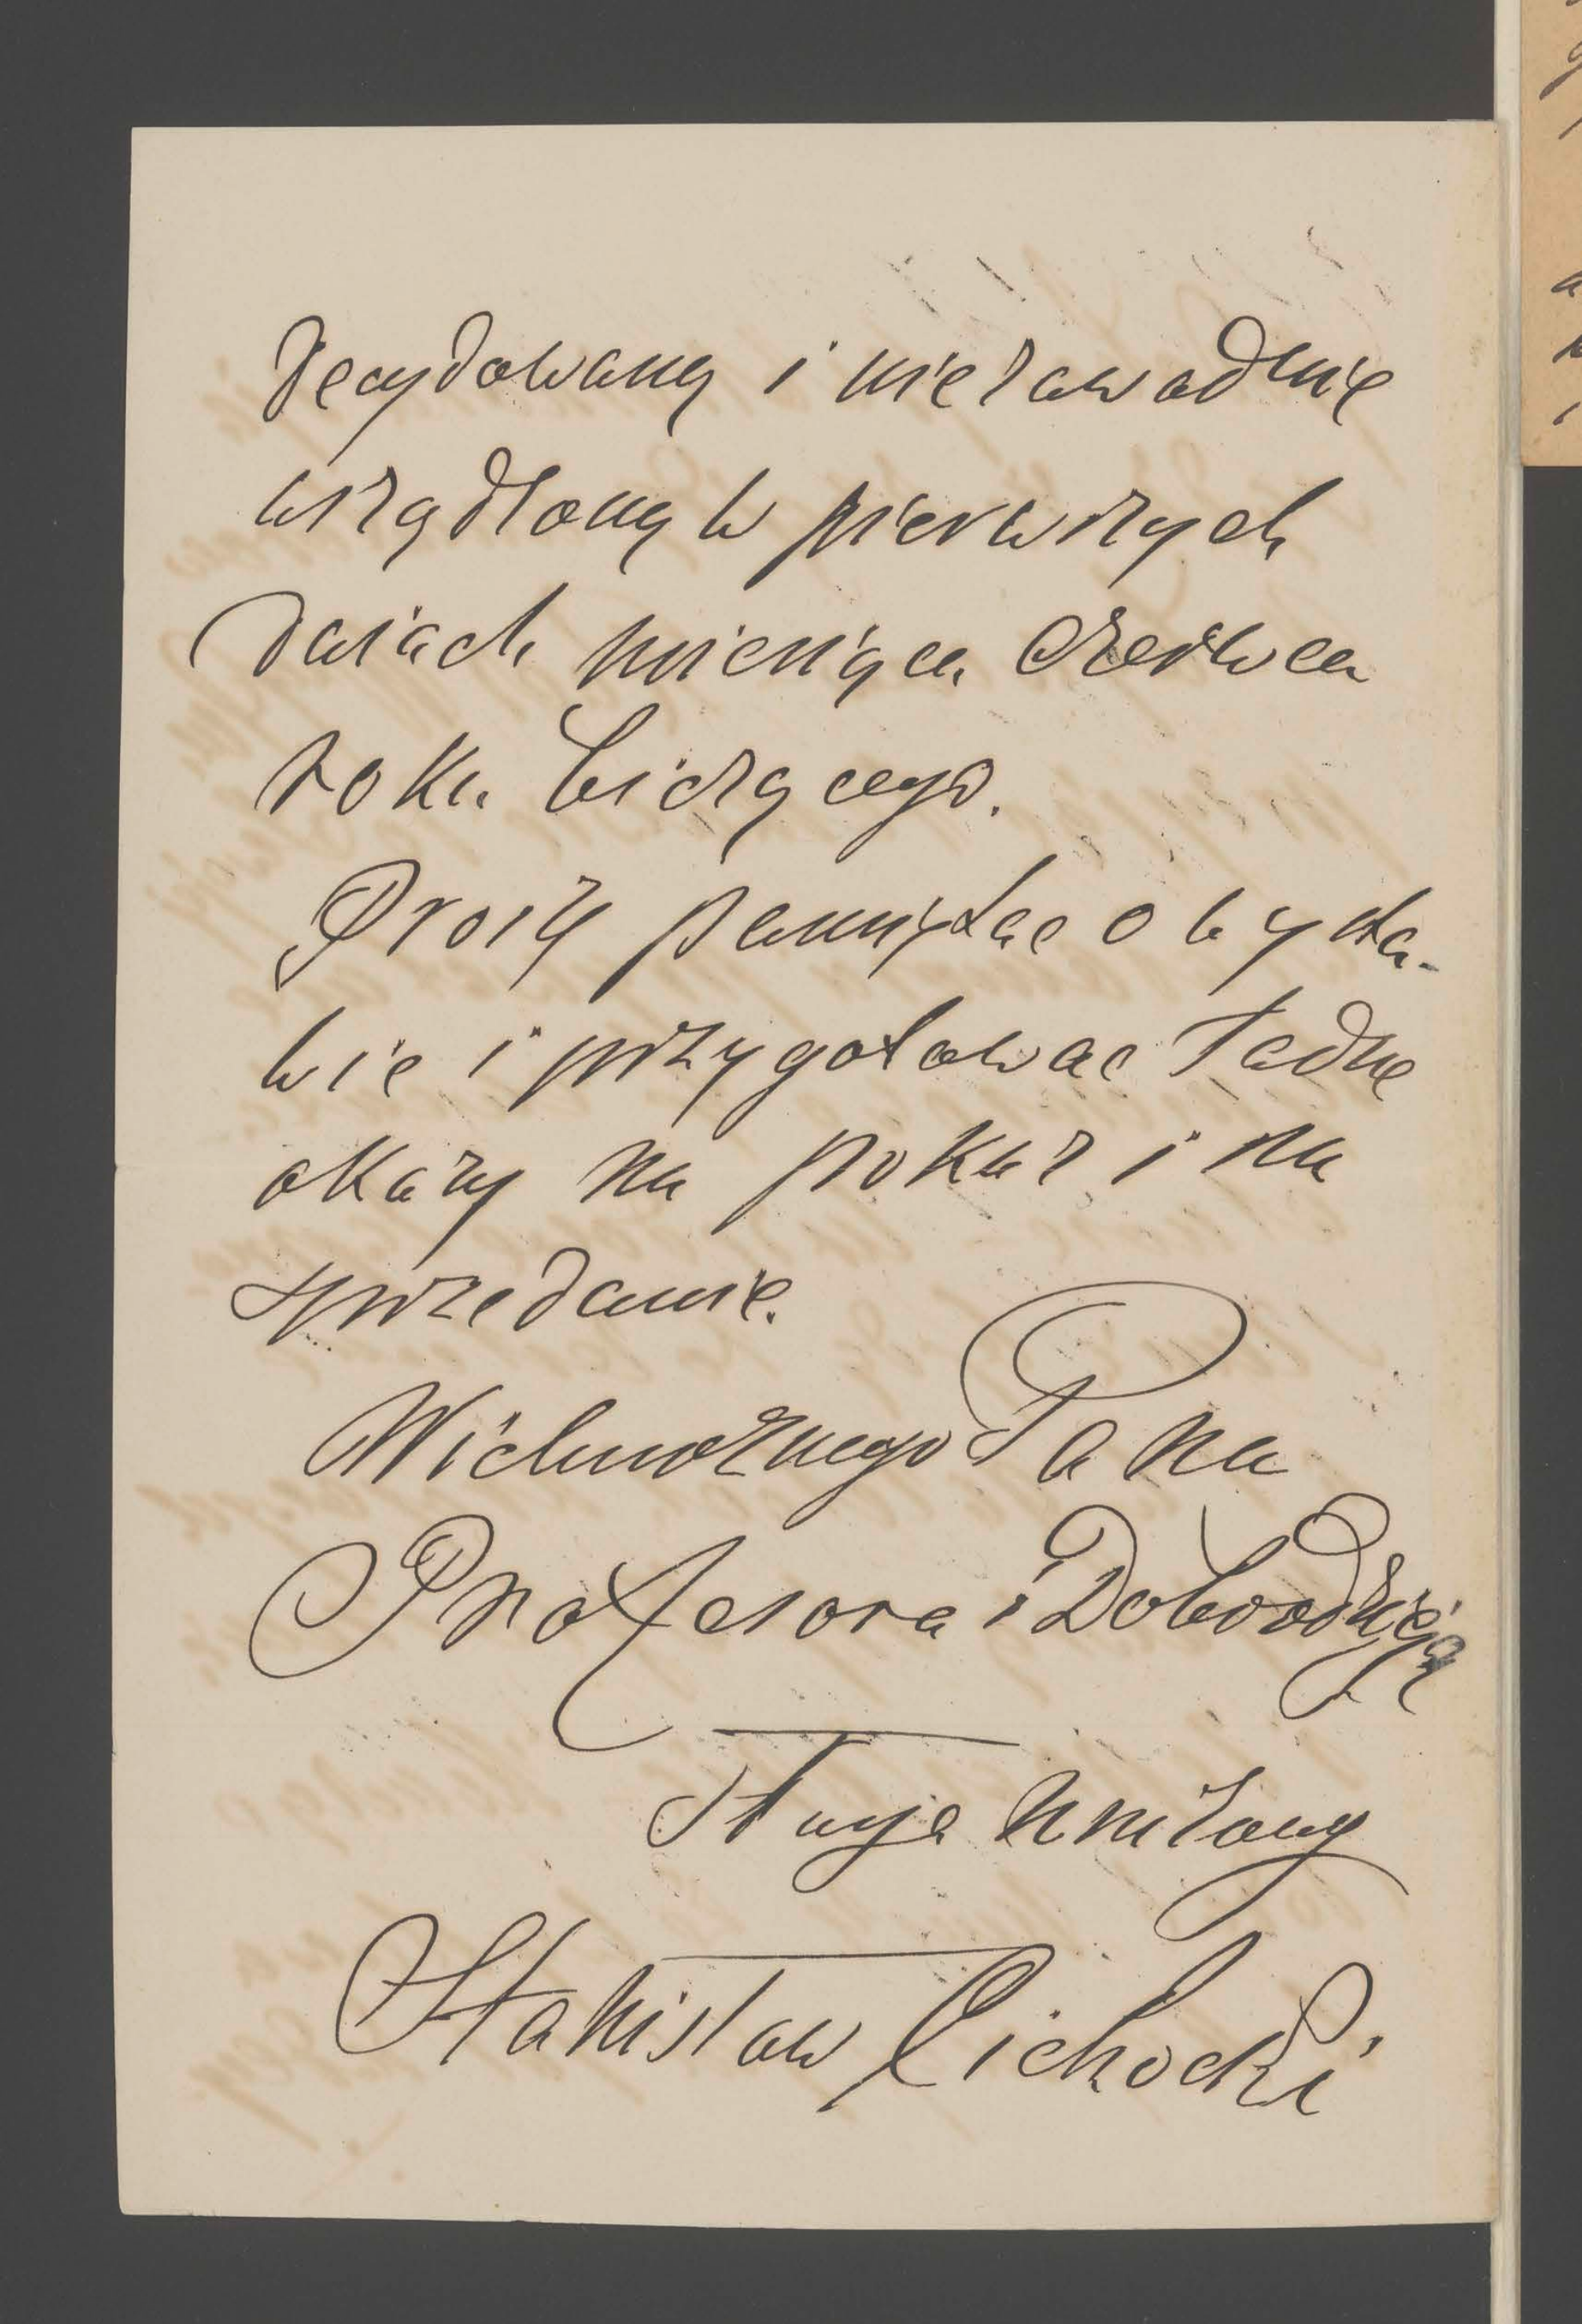 decydowany i niezawodnie
urządzony w pierwszych
dniach miesiąca Czerwca
roku bieżącego.
Proszę pamiętac o wysta-
wie i przygotowac ładne
okazy na pokaz i na
sprzedanie.
Wielmożnego Pana
Profesora i Dobrodzieja
Sługa uniżony
Stanisław Cichocki